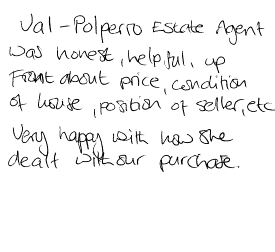 Val - Polperro Estate Agent
was honest, helpful, up
Front about price, condition
of house, position of seller, etc
Very happy with how she
dealt with our purchase.